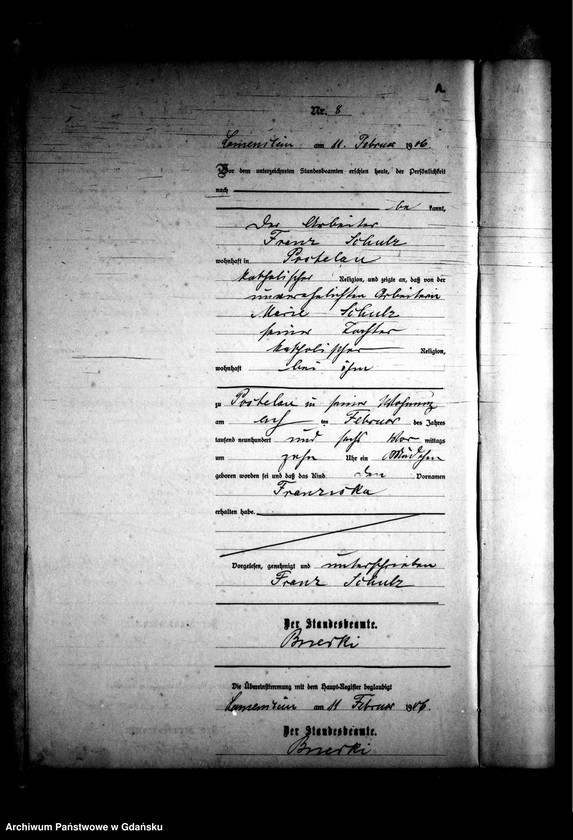 A.
Nr. 8
am 11. Februar 1906.
Vor dem unterzeichneten Standesbeamten erschien heute, der Persönlichkeit
nach
be kannt,
der Arbeiter
Franz Schulz
wohnhaft in Postelau
katholischer Religion, und zeigte an, daß von der
unverehelichten Arbeiterin
Marie Schulz
seiner Tochter
katholischer Religion,
wohnhaft bei ihm
zu Postelau in seiner Wohnung
am ten Februar des Jahres
tausend neunhundert und sechs Vor mittags
um zehn Uhr ein Mädchen
geboren worden sei und daß das Kind den Vornamen
Franziska
erhalten habe.
Vorgelesen, genehmigt und unterschrieben
Franz Schulz
Der Standesbeamte.
Die Übereinstimmung mit dem Haupt-Register beglaubigt
am 11. Februar 1906.
Der Standesbeamte.
Archiwum Państwowe w Gdańsku